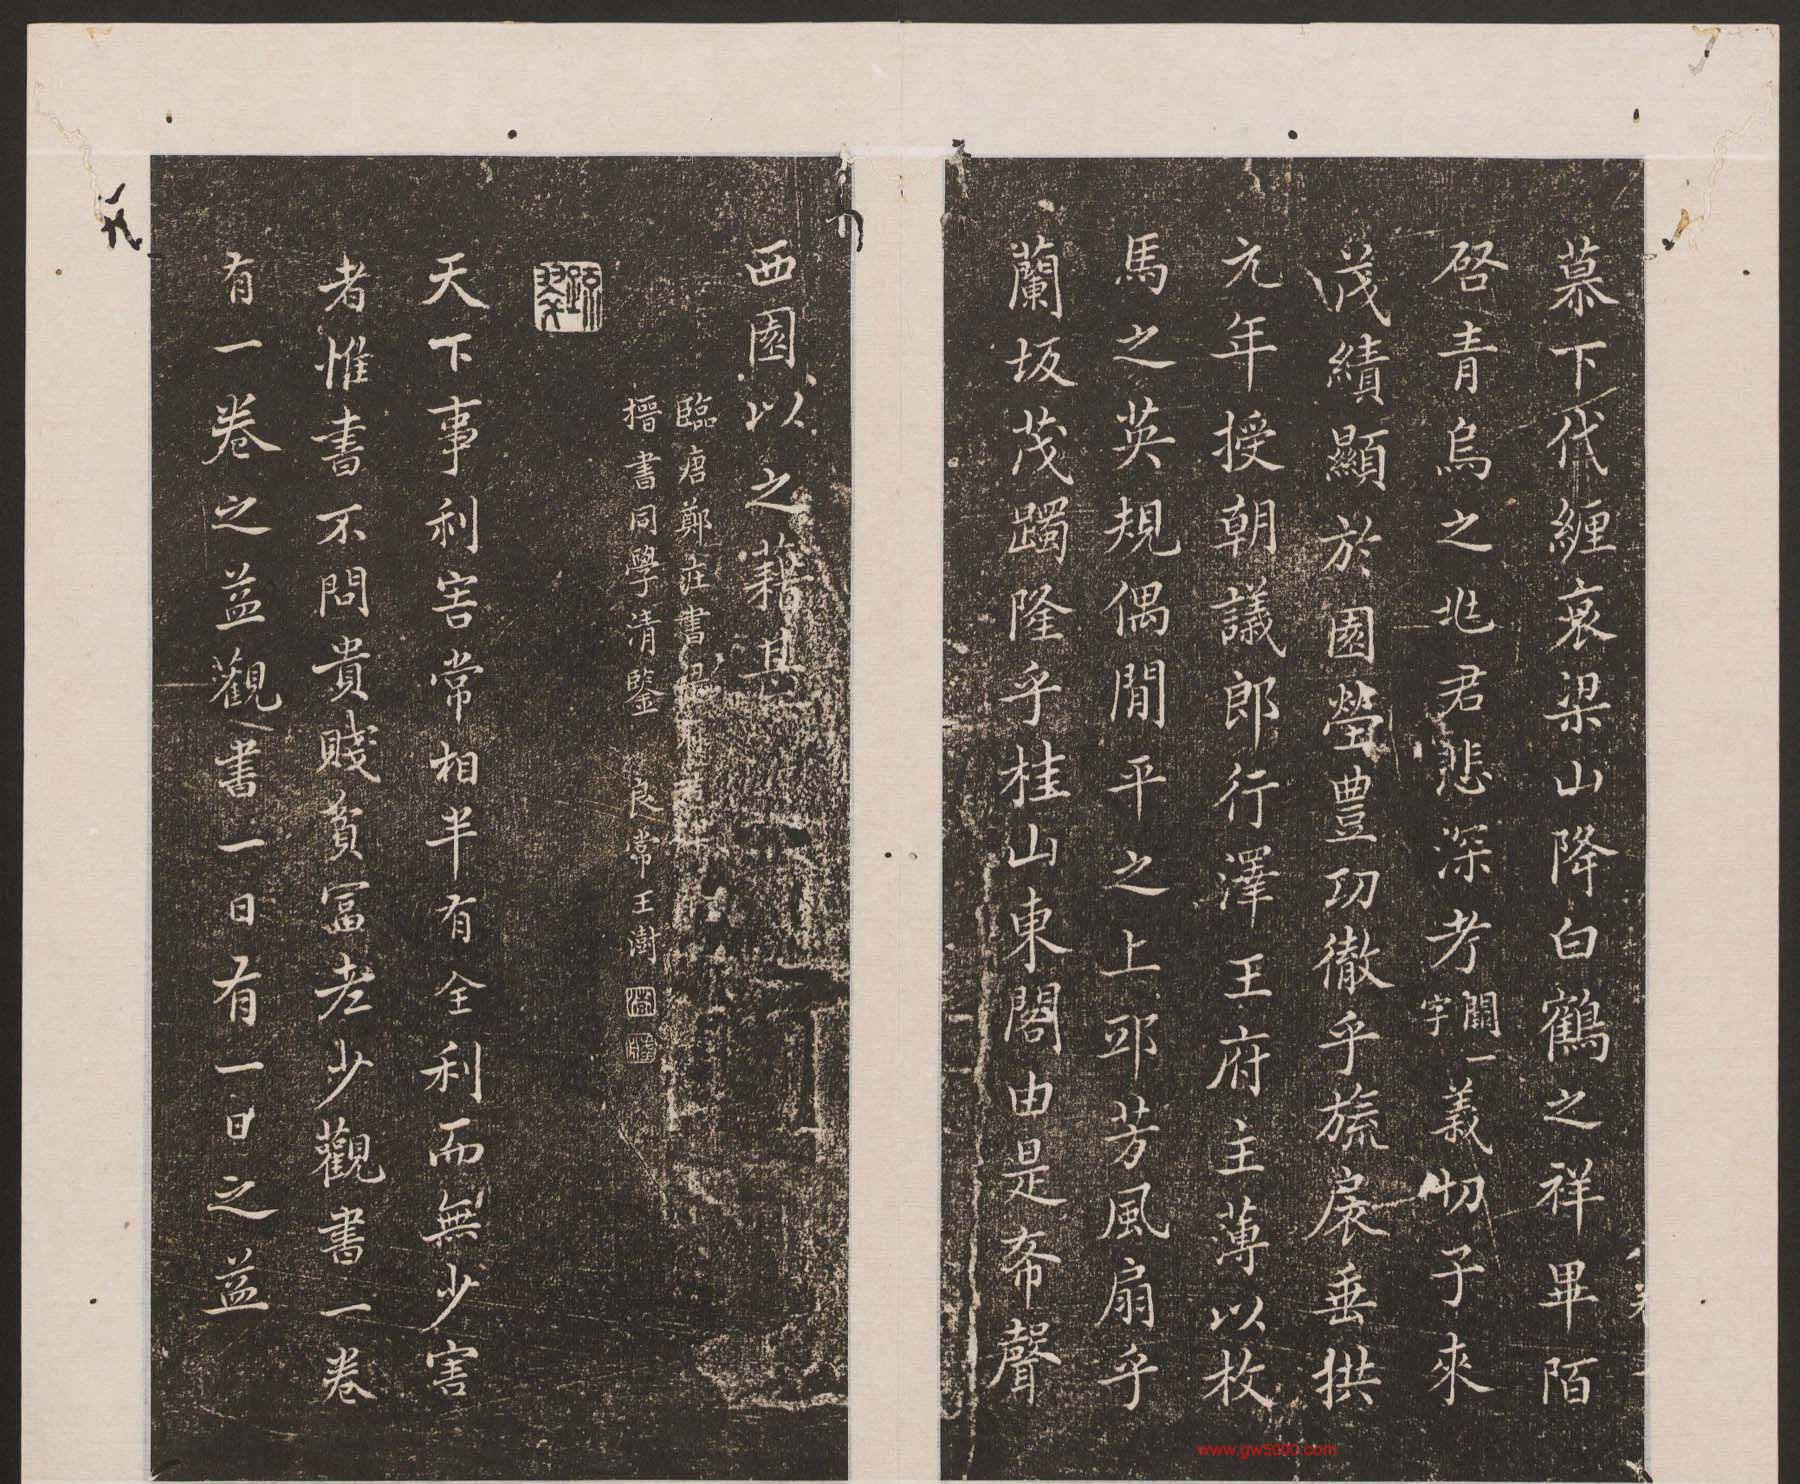 慕下代纏哀梁山降白鶴之祥畢陌
啓青烏之兆君悲深考闕一字義切子來
茂績顯於園塋豊功徹乎旒扆垂拱
元年授朝議郎行澤王府主薄以枚
馬之英規偶閒平之上邱芳風扇乎
蘭坂茂躅隆乎桂山東閣由是希聲
西園以之藉甚
臨唐鄭莊書
搢書同學清鑒 良常王澍
天下事利害常相半有全利而無少害
者惟書不問貴賤貧富老少觀書一卷
有一卷之益觀書一日有一日之益
www.gw5000.com